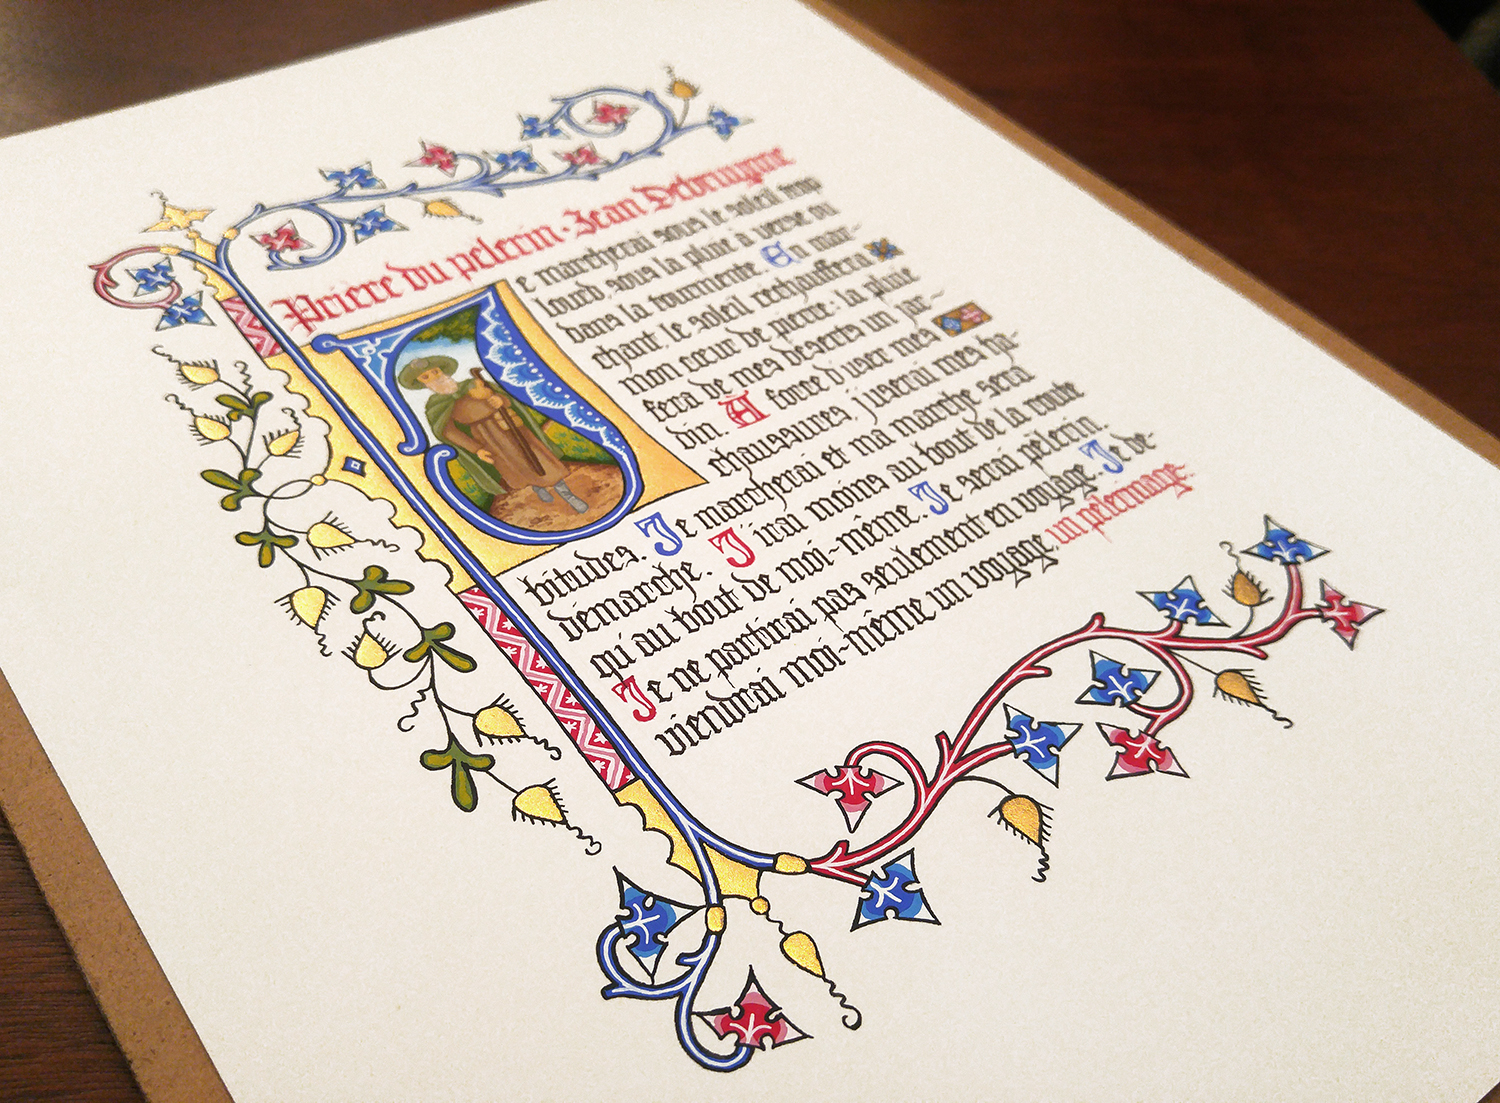 Prière du pelerin · Jean Debruynne
Je marcherai sous le soleil trop
lourd, sous la pluie à verse ou
dans la tourmente. En mar-
chant, le soleil réchauffera
mon cœur de pierre; la pluie
fera de mes déserts un jar-
din. A force d'user mes
chaussures, j'userai mes ha-
bitudes. Je marcherai et ma marche sera
démarche. J'irai moins au bout de la route
qu'au bout de moi-même. Je serai pelerin.
Je ne partirai pas seulement en voyage. Je de-
viendrai moi-même un voyage, un pèlerinage.